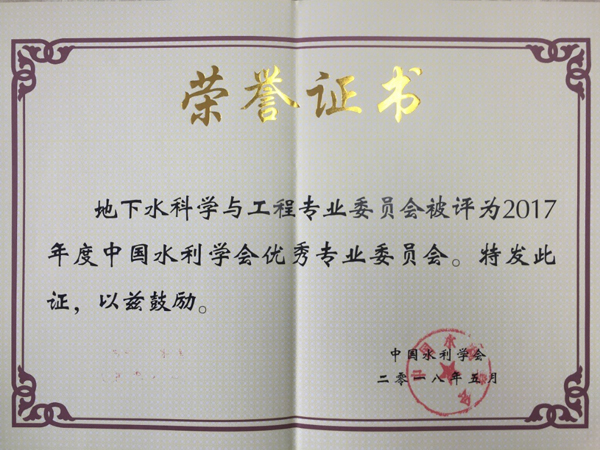 荣誉证书
地下水科学与工程专业委员会被评为2017
年度中国水利学会优秀专业委员会。特发此
证，以兹鼓励。
中国水利学会
二零一八年五月